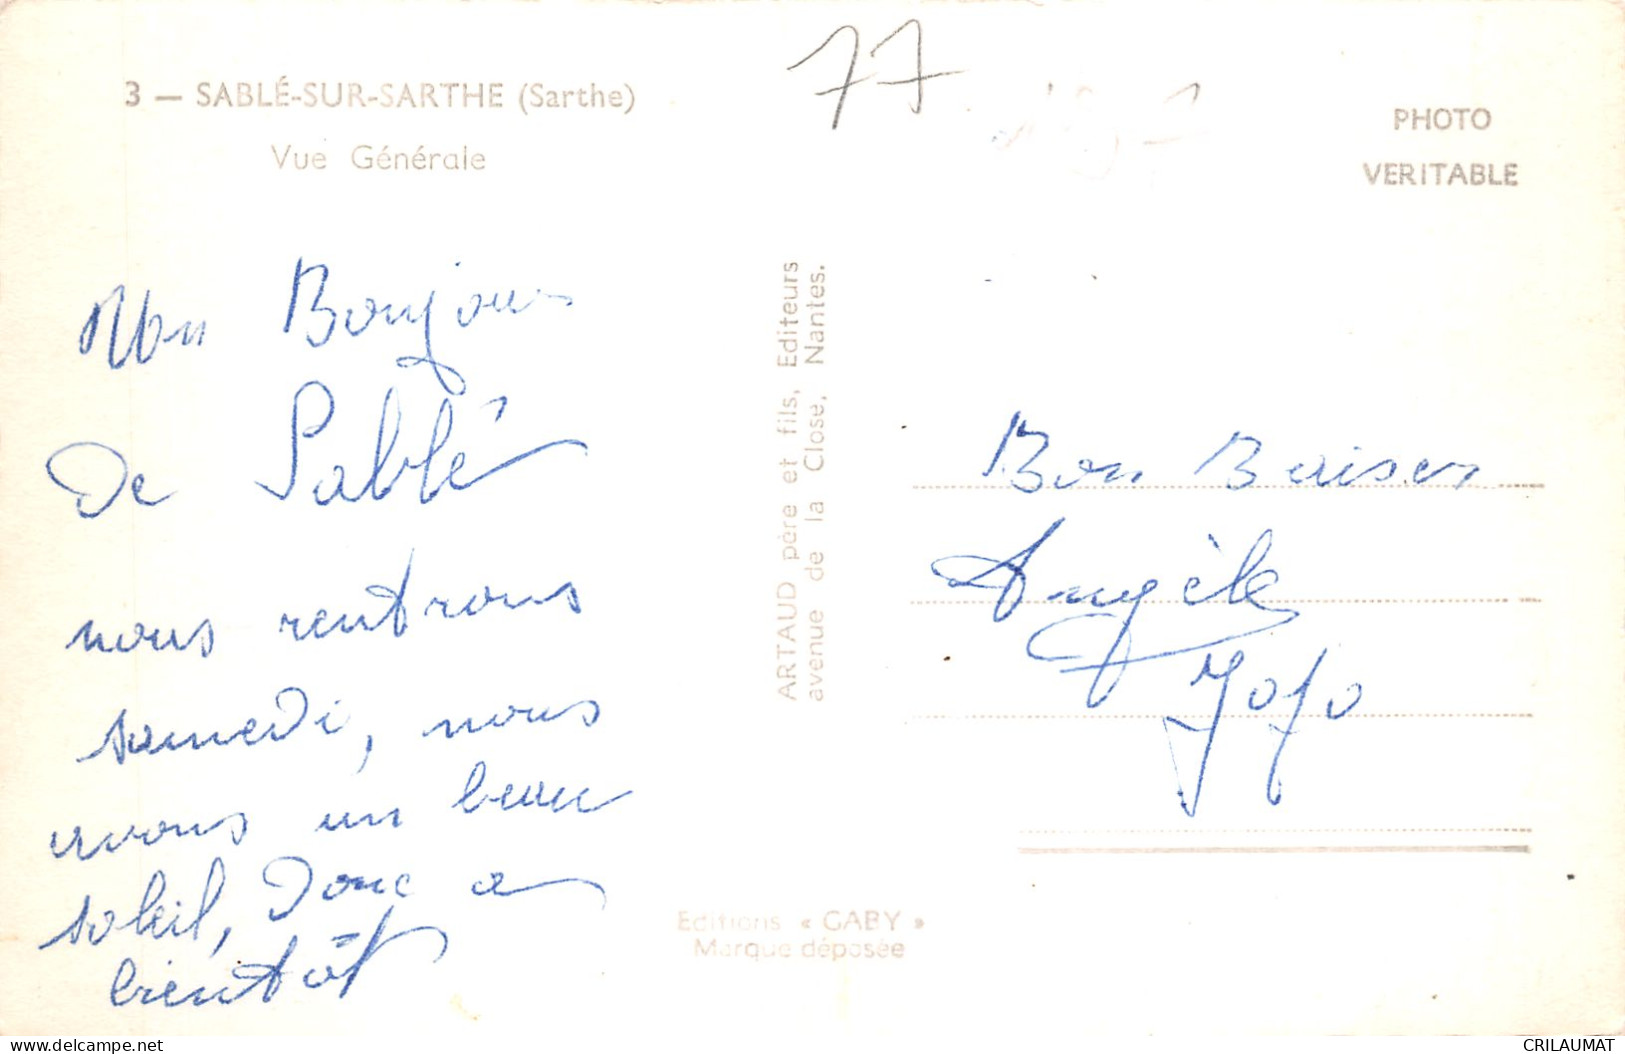 77
3 — SABLÉ-SUR-SARTHE (Sarthe)
Vue Générale
PHOTO
VERITABLE
Mon Bonjour
De Sablé
nous rentrons
samedi, nous
avons un beau
soleil, Donc a
bientôt
ARTAUD père et fils, Editeurs
avenue de la Close, Nantes.
Bon Baisers
Angèle
Jojo
Editions « GABY »
Marque déposée
delcampe.net
CRILAUMAT